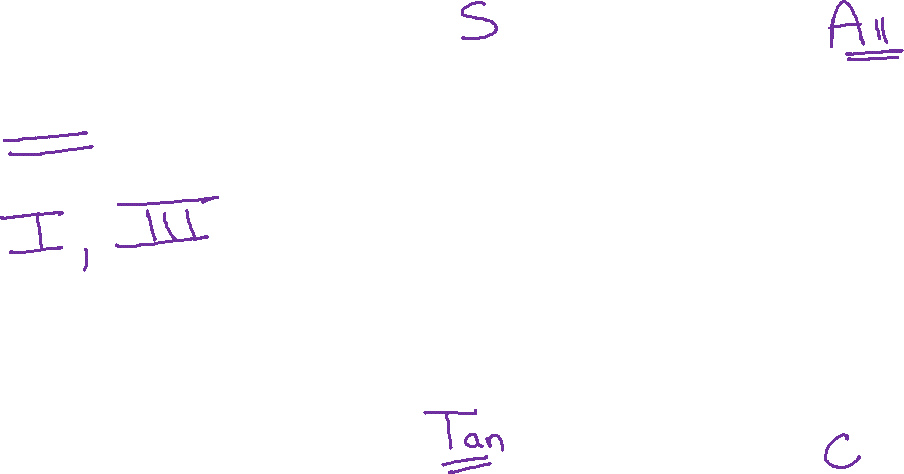 S All
I, III
Tan C